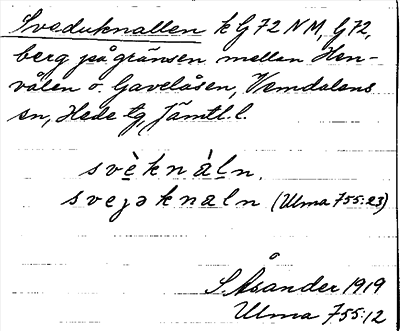 Sveduknallen k G72 NM, G72,
berg på gränsen mellan Hen-
vålen o. Gavelåsen, Vemdalens
sn, Hede tg, Jämtl. l.
svèknàln.
svejəknaln (Ulma 755:23)
S. Åsander 1919
Ulma 755:12